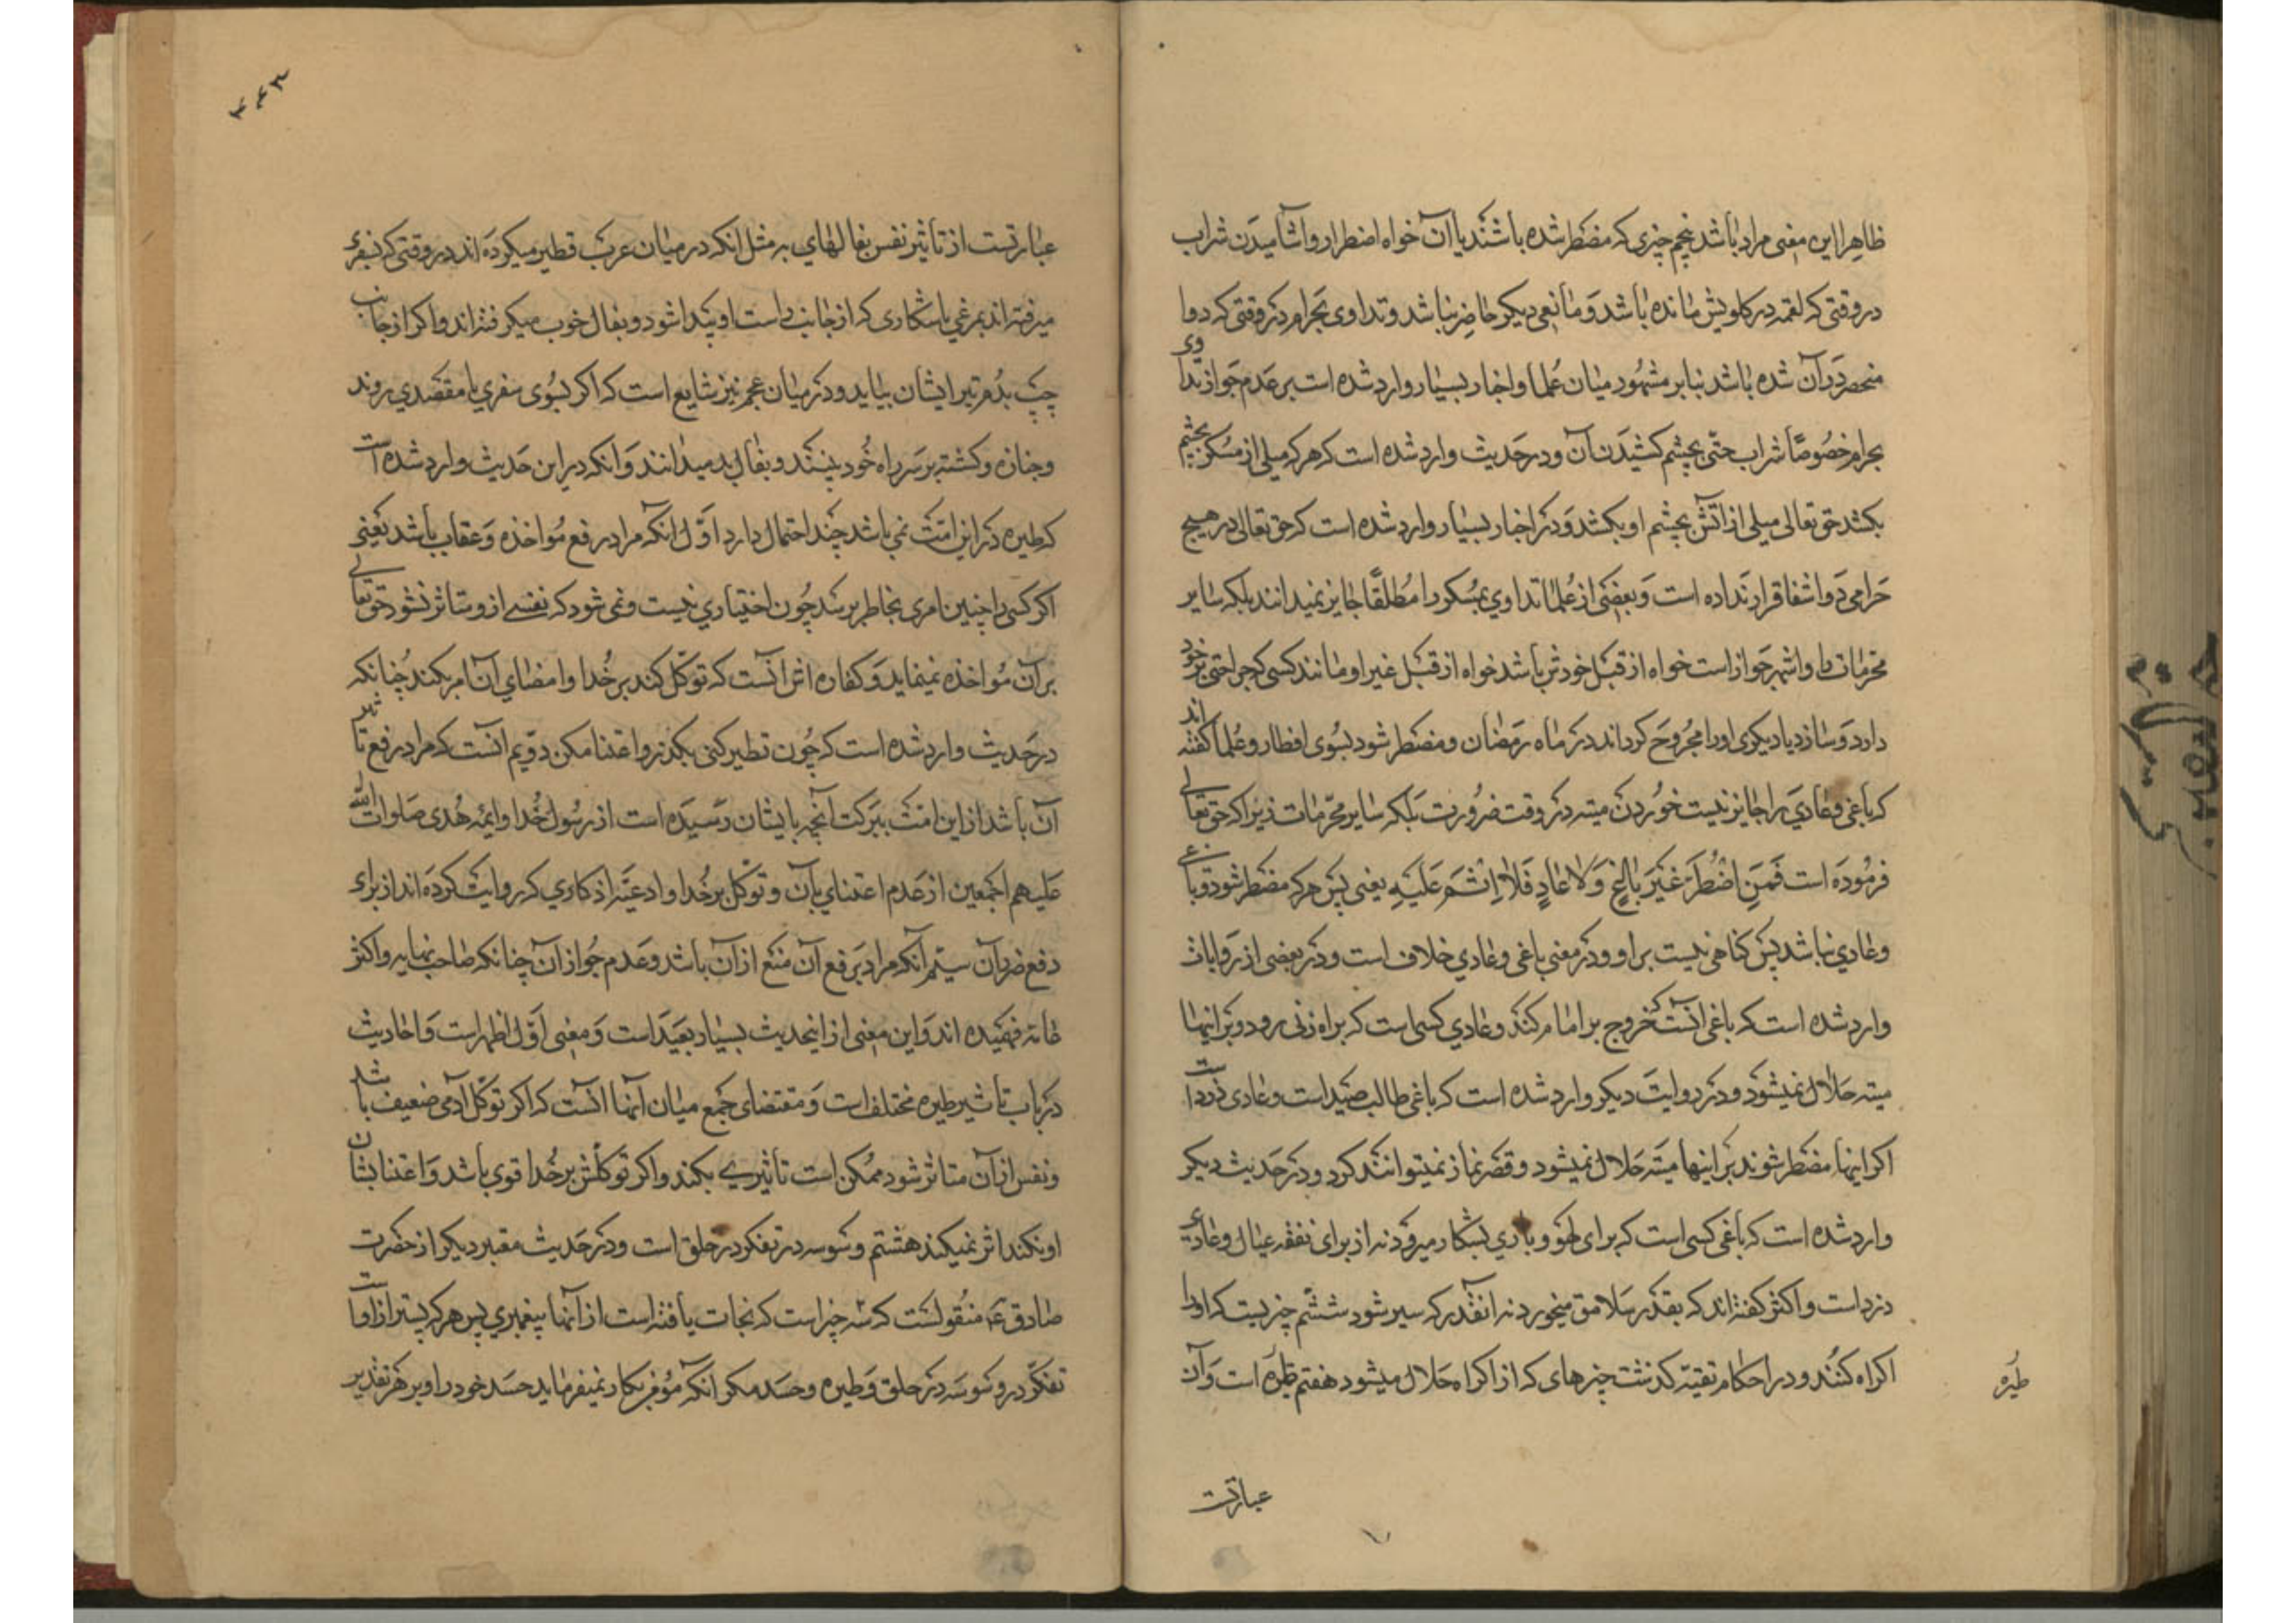 ظاهرا این معنی مراد باشد پنجم چیزی که مضطر شده باشند یا آن خواه اضطرار و اشامیدن شراب
در وقتی که لقمه در کلویش مانده باشد و مانعی دیکر حاضر نباشد و تداوی بحرام در وقتی که دوا
منحصر در آن شده باشد بنابر مشهور میان علما و اخبار بسیار وارد شده است بر عدم جواز تداوی
بحرام خصوصًا شراب حتی بچشم کشیدن آن و در حدیث وارد شده است که هر که میلی از مسکر بچشم
بکشد حق تعالی میلی از اتش بچشم او بکشد و در اخبار بسیار وارد شده است که حق تعالی در هیچ
حرامی دوا شفا قرار نداده است و بعضی از علما تداوی بمسکر را مطلقًا جایز نمیدانند بلکه سایر
محرمات را و اشهر جواز است خواه از قبل خودش باشد خواه از قبل غیر او مانند کسی که جراحتی بر خود
دارد و سازد یا دیکری او را مجروح کرداند در ماه رمضان و مضطر شود بسوی افطار و علما کفته اند
که باغی و عادی را جایز نیست خوردن میته در وقت ضرورت بلکه سایر محرمات نیز زیرا که حق تعالی
فرموده است فَمَنِ اضْطُرَّ غَيْرَ بَاغٍ وَلَا عَادٍ فَلَا إِثْمَ عَلَيْهِ یعنی پس هر که مضطر شود و باغی
و عادی نباشد پس کناهی نیست بر او و در معنی باغی و عادی خلاف است و در بعضی از روایات
وارد شده است که باغی انست که خروج بر امام کند و عادی کسی است که براه زنی رود و بر اینها
میته حلال نمیشود و در روایت دیکر وارد شده است که باغی طالب صید است و عادی دزد است
اکر اینها مضطر شوند بر اینها میته حلال نمیشود و قصر نماز نمیتوانند کرد و در حدیث دیکر
وارد شده است که باغی کسی است که برای لهو و بازی بشکار میرود نه از برای نفقه عیال و عادی
دزد است و اکثر کفته اند که بقدر سد رمق میخورد نه انقدر که سیر شود ششم چیزیست که او را
اکراه کنند و در احکام تقیّه کذشت چیزهای که از اکراه حلال میشود هفتم طیره است و آن
طیره
عبارتست
۴۴۳
عبارتست از تأثیر نفس بفالهای بد مثل انکه در میان عرب تطیر میکرده اند در وقتی که بسفری
میرفته اند بمرغی یا شکاری که از جانب راست او پیدا شود و بفال خوب میکرفته اند و اکر از جانب
چپ بدر ایشان بیاید و در میان عجم نیز شایع است که اکر بسوی سفری یا مقصدی روند
و جنازه و کشته بر سر راه خود بینند و بفال بد میدانند و انکه در این حدیث وارد شده است
که طیره در این امت نمی باشد چند احتمال دارد اول انکه مراد رفع مؤاخذه و عقاب باشد یعنی
اکر کسی را چنین امری بخاطر برسد چون اختیاری نیست و نمی شود که نفسی از و متاثر نشود حق تعالی
بر آن مؤاخذه نمینماید و کفاره اش انست که توکل کند بر خدا و امضای آن امر بکند چنانکه
در حدیث وارد شده است که چون تطیر کنی بکذر و اعتنا مکن دویم انست که مراد رفع تاثیر
آن باشد از این امت ببرکت آنچه بایشان رسیده است از رسول خدا و ایمه هدی صلوات الله
علیهم اجمعین از عدم اعتنای بان و توکل بر خدا و ادعیه و اذکاری که روایت کرده اند از برای
دفع ضرر آن سیم آنکه مراد برفع آن منع از آن باشد و عدم جواز آن چنانکه صاحب نهایه و اکثر
عامه فهمیده اند و این معنی از اینحدیث بسیار بعید است و معنی اول اظهر است و احادیث
در باب تاثیر طیره مختلف است و مقتضای جمع میان آنها انست که اکر توکل آدمی ضعیف باشد
و نفس از آن متاثر شود ممکن است تأثیری بکند و اکر توکلش بر خدا قوی باشد و اعتنا بشان
او نکند اثر نمیکند هشتم وسوسه در تفکر در خلق است و در حدیث معتبر دیکر از حضرت
صادق ع منقولست که سه چیز است که نجات یافته است از آنها پیغمبری پس هر که پستر از اوست
تفکر در وسوسه در خلق و طیره و حسد مکر انکه مؤمن بکار نمیفرماید حسد خود را و بر هر تقدیر